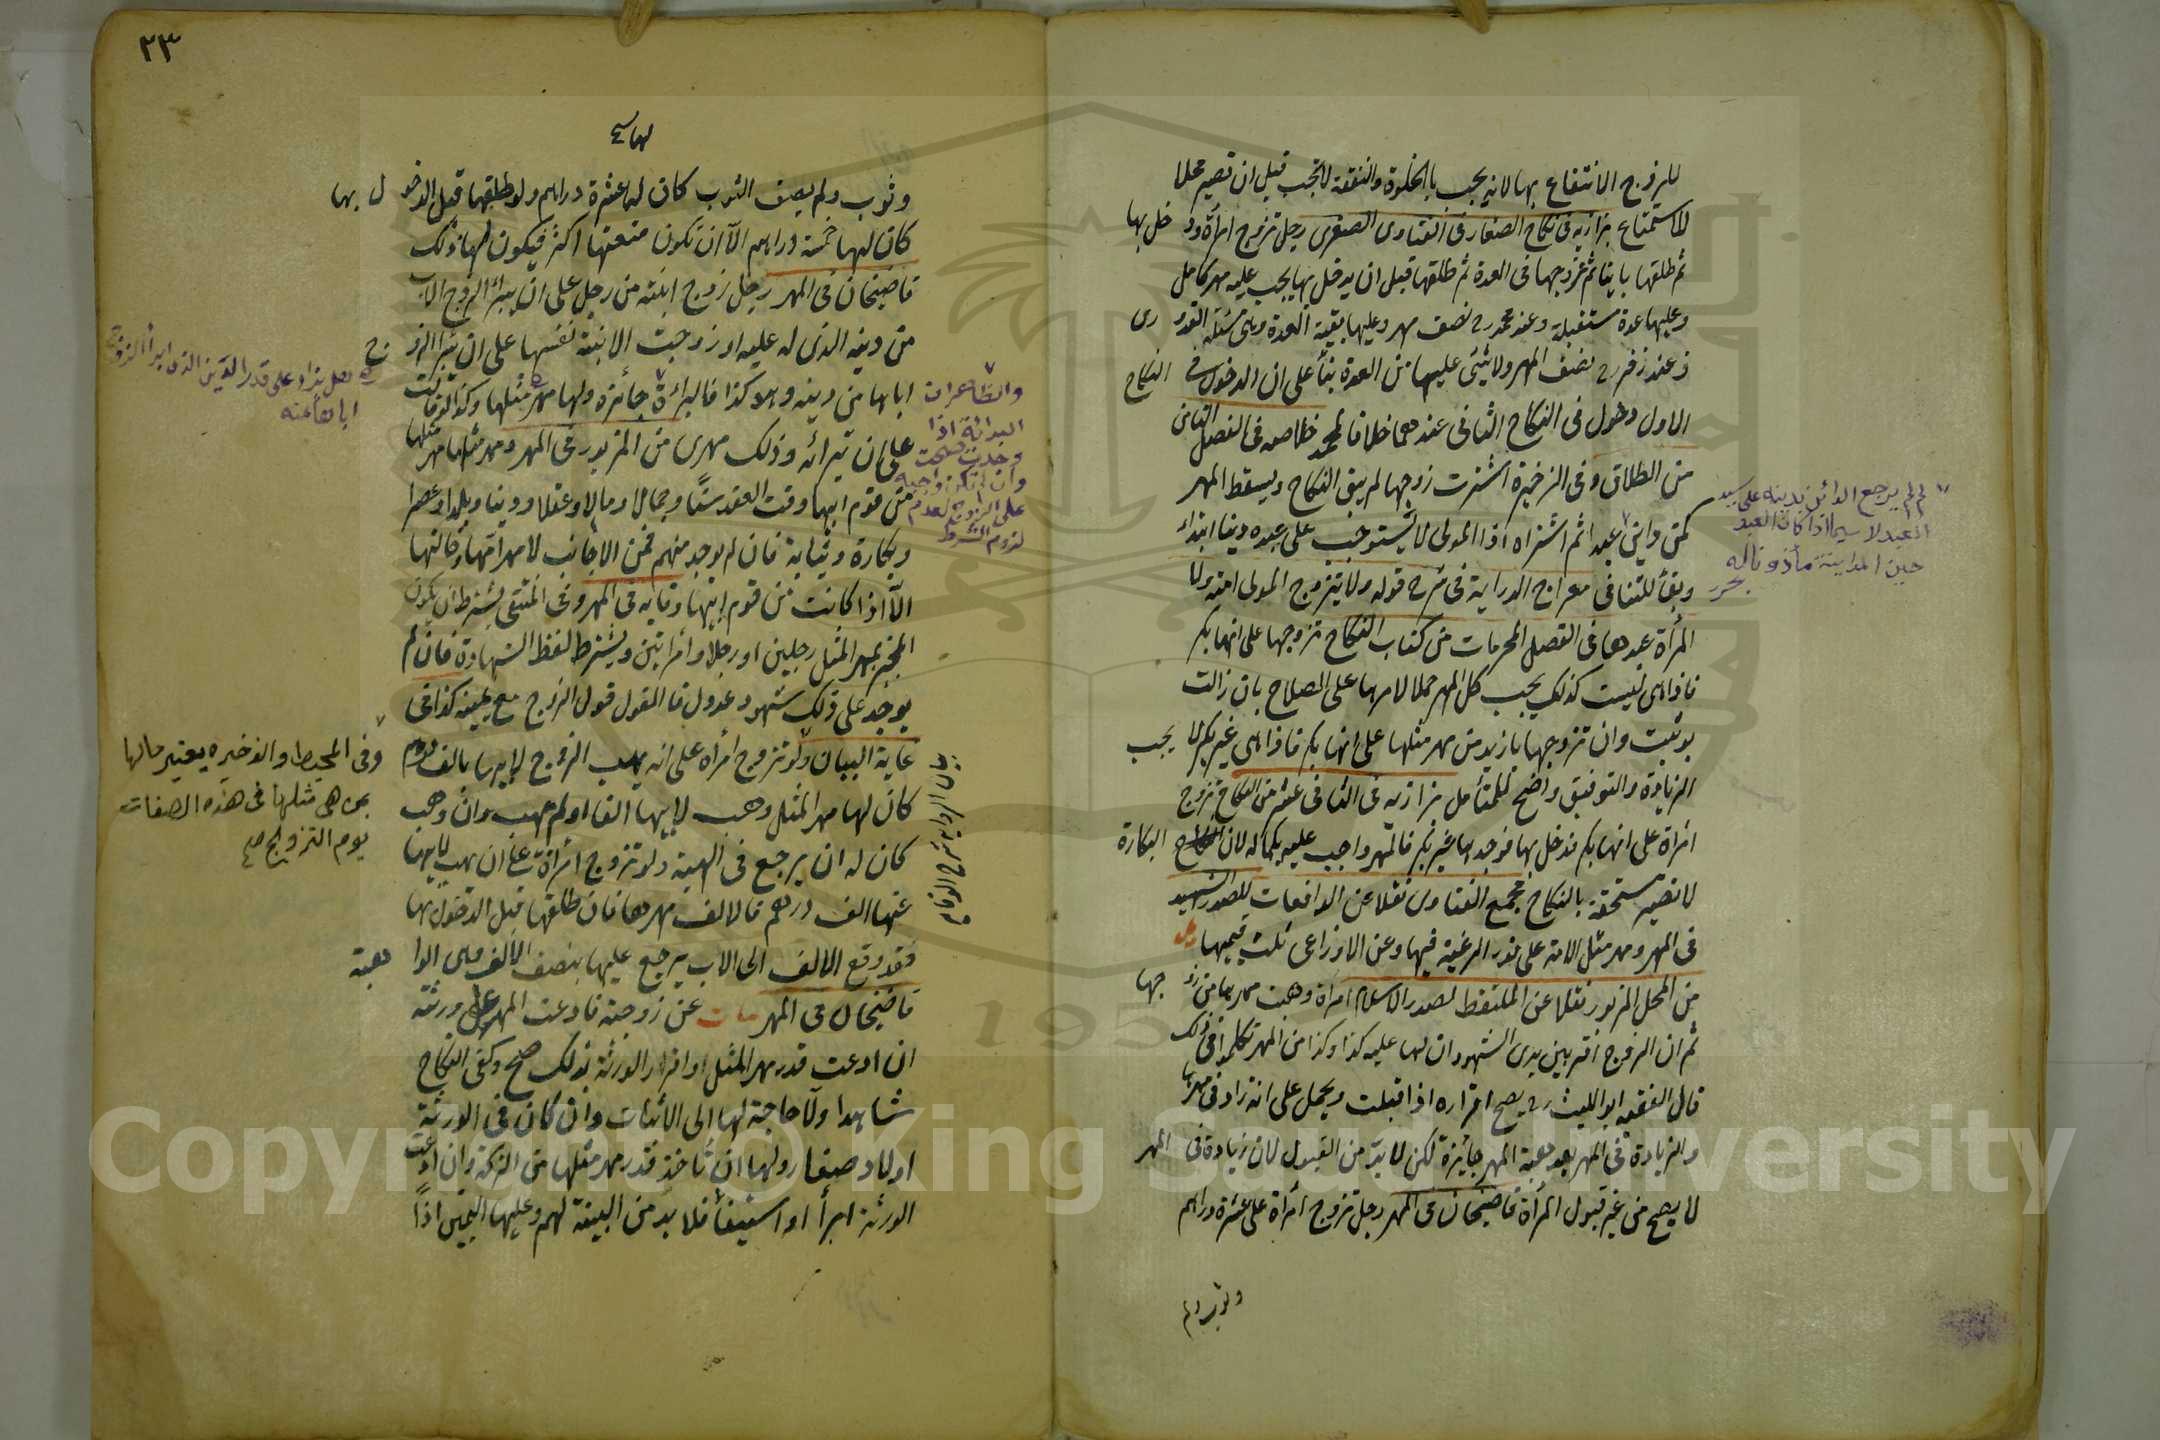 للزوج الانتفاع بها لانه يجب بالخلوة والنفقة لا تجب قبل ان تصير محلا
للاستمتاع بزازيه فى نكاح الصغار فى الفتاوى الصغرى رجل تزوج امرأة ودخل بها
ثم طلقها باينا ثم تزوجها فى العدة ثم طلقها قبل ان يدخل بها يجب عليه مهر كامل
وعليها عدة مستقبلة وعند محمد رح نصف مهر وعليها بقية العدة وهى مسئلة القدورى
وعند زفر رح نصف المهر ولا شئ عليها من العدة بنأ على ان الدخول فى النكاح
الاول دخول فى النكاح الثانى عندهما خلافا لمحمد خلاصه فى الفصل الثامن
من الطلاق وفى الذخيرة اشترت زوجها لم يبق النكاح ويسقط المهر
كمن داين عبدا ثم اشتراه اذا المولى لا يستوجب على عبده دينا ابتداء
وبقأ للتنافى معراج الدراية فى شرح قوله ولا يتزوج المولى امته ولا
المرأة عبدها فى الفصل المحرمات من كتاب النكاح تزوجها على انها بكر
فاذا هى ليست كذلك يجب كل المهر حملا لامرها على الصلاح بان زالت
بوثبت وان تزوجها بازيد من مهر مثلها على انها بكر فاذا هى غير بكر لا يجب
الزيادة والتوفيق واضح للمتأمل بزازيه فى الثانى عشر من النكاح تزوج
امرأة على انها بكر فدخل بها فوجدها غير بكر فالمهر واجب عليه بكماله لان البكارة
لا تصير مستحقة بالنكاح مجمع الفتاوى نقلا عن الواقعات للصدر الشهيد
فى المهر ومهر مثل الامة على قدر الرغبة فيها وعن الاوزاعى ثلث قيمتها
من المحل المزبور نقلا عن الملتقط لصدر الاسلام امرأة وهبت مهرها من زوجها
ثم ان الزوج اقر بين يدى الشهود ان لها عليه كذا وكذا من المهر تكلموا فى ذلك
قال الفقيه ابو الليث رح يصح اقراره اذا قبلت ويحمل على انه زاد فى مهرها
والزيادة فى المهر بعد هبة المهر جائزة لكن لا بد من القبول لان زيادة فى المهر
لا يصح من غير قبول المرأة قاضيخان فى المهر رجل تزوج امرأة على عشرة دراهم
وثوب ولم
لم يرجع الدائن بدينه على سيد
العبد لا سيما اذا كان العبد
حين المداينة مأذونا له
بحر
٢٣
لها
وثوب ولم يصف الثوب كان لها عشرة دراهم ولو طلقها قبل الدخول بها
كان لها خمسة دراهم الا ان تكون متعتها اكثر فيكون لها ذلك
قاضيخان فى المهر رجل زوج ابنته من رجل على ان يبرأ الزوج الاب
من دينه الذى له عليه او زوجت الابنة نفسها على ان تبرأ الزوج
اباها من دينه وهو كذا فالبراءة جائزة ولها مهر مثلها وكذا لو قالت
على ان تبرائه وذلك مهرى من المزبور فى المهر ومهر مثلها مهر مثلها
من قوم ابيها وقت العقد سنا وجمالا ومالا وعقلا ودينا وبلدا وعصرا
وبكارة وثيابة فان لم يوجد منهم فمن الاجانب لا مهر امها وخالتها
الا اذا كانت من قوم ابيها وقايه فى المهر وفى المنتقى يشترط ان يكون
المخبر بمهر المثل رجلين او رجلا وامراتين ويشترط لفظ الشهادة فان لم
يوجد على ذلك شهود عدول فالقول قول الزوج مع يمينه كذا فى
غاية البيان ولو تزوج امرأة على انه يهب الزوج لابيها بالف درهم
كان لها مهر المثل وهب لابيها الفا او لم يهب وان وهب
كان له ان يرجع فى الهبة ولو تزوج امرأة على ان يهب لابيها
عنها الف درهم فالالف مهرها فان طلقها قبل الدخول بها
فقد وقع الالف الى الاب يرجع عليها بنصف الالف وهى الواهبة
قاضيخان فى المهر مات عن زوجته فادعت المهر على ورثته
ان ادعت قدر مهر المثل او اقرار الورثة بذلك صح وكفى النكاح
شاهدا ولا حاجة لها الى الاثبات وان كان فى الورثة
اولاد صغار ولها ان تأخذ قدر مهر مثلها من التركة وان ادعت
الورثة ابرأ او استيفأ فلا بد من البينة لهم وعليها اليمين اذا
والظاهر ان
البراءة اذا
وجدت صحت
وان لم تكن واجبة
على الزوج لعدم
لزوم الشرط
ابا
وفى المحيط والذخيره يعتبر حالها
بمن هى مثلها فى هذه الصفات
يوم التزوج صح